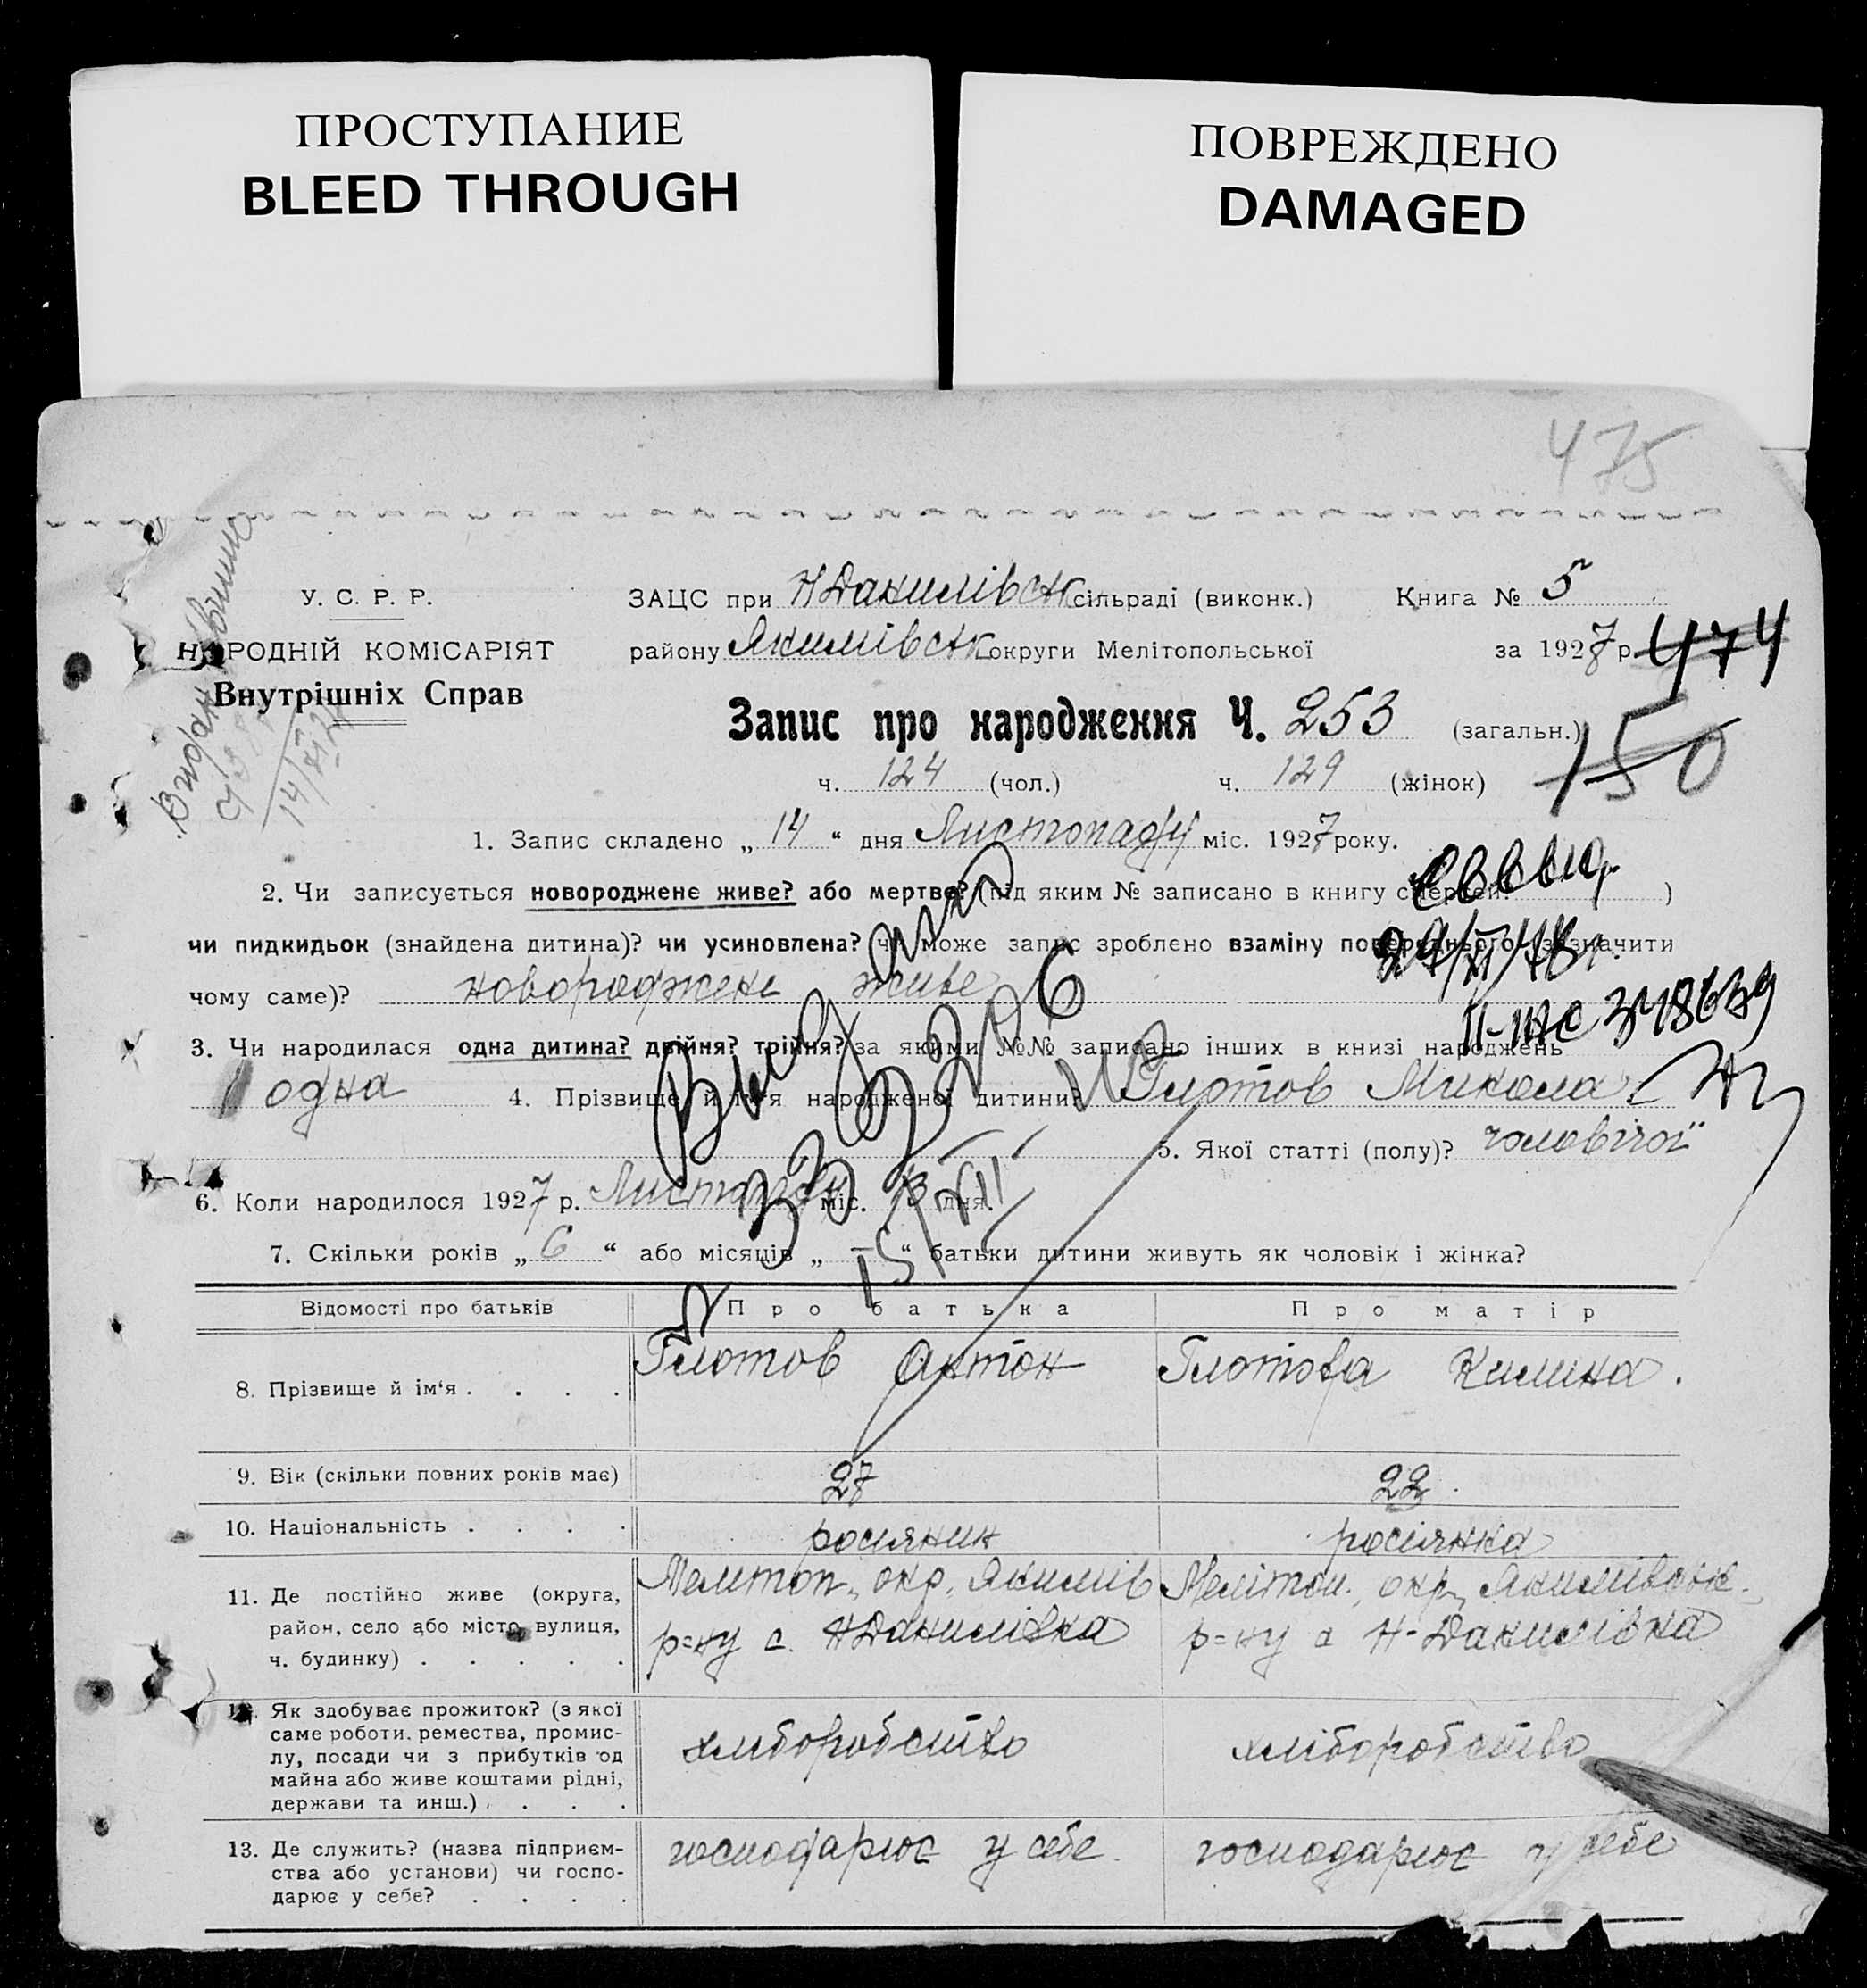 ПРОСТУПАНИЕ
BLEED THROUGH
ПОВРЕЖДЕНО
DAMAGED
475
У. С. Р. Р.
НАРОДНІЙ КОМІСАРІЯТ
Внутрішніх Справ
ЗАЦС при Н Данилівськ сільраді (виконк.)
району Якимівськ округи Мелітопольської
Книга № 5
за 1927 р.
474
150
Запис про народження Ч. 253 (загальн.)
ч. 124 (чол.) ч. 129 (жінок)
1. Запис складено „ 14 “ дня Листопаду міс. 1927 року.
2. Чи записується новороджене живе? або мертве? (під яким № записано в книгу смертей? )
чи пидкидьок (знайдена дитина)? чи усиновлена? чи може запис зроблено взаміну попереднього (зазначити
чому саме)? новороджене живе
3. Чи народилася одна дитина? двійня? трійня? за якими №№ записано інших в книзі народжень
одна 4. Прізвище й ім'я народженої дитини? Глотов Микола
5. Якої статті (полу)? чоловічої
6. Коли народилося 1927 р. Листопада міс. 13 дня.
7. Скільки років „ 6 “ або місяців „ – “ батьки дитини живуть як чоловік і жінка?
Відомості про батьків Про батька Про матір
8. Прізвище й ім'я . . . . Глотов Антон Глотова Килина.
9. Вік (скільки повних років має) 27 22.
10. Національність . . . . росіяник росіянка
11. Де постійно живе (округа, Мелітоп. окр. Якимів Мелітоп. окр. Якимівськ.
район, село або місто, вулиця, р=ну с. Н Данилівка р=ну с Н-Данилівка
ч. будинку) . . . . .
12. Як здобуває прожиток? (з якої
саме роботи, ремества, промис-
лу, посади чи з прибутків од хліборобство хліборобство
майна або живе коштами рідні,
держави та инш.) . . . .
13. Де служить? (назва підприєм- господарює у себе. господарює у себе
ства або установи) чи госпо-
дарює у себе? . . . .